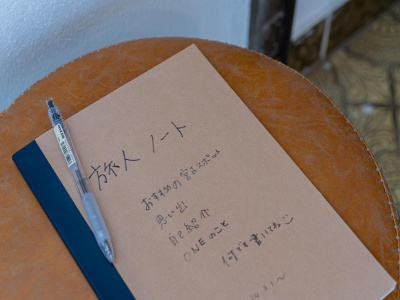 旅人 ノート
おすすめの宮古スポット
思い出
自己紹介
ONEのこと
何でも書いてね